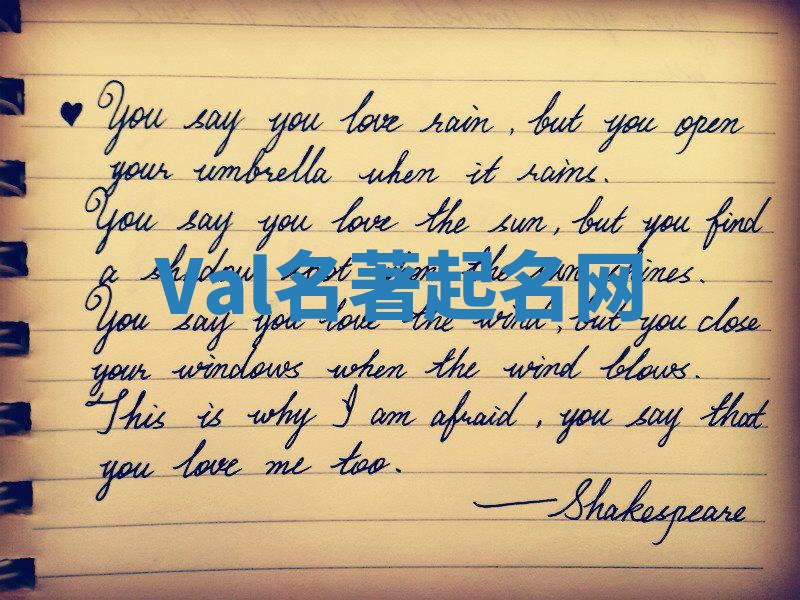 ♥ You say you love rain, but you open
your umbrella when it rains.
You say you love the sun, but you find
a shadow spot when the sun shines.
Val名著起名网
You say you love the wind, but you close
your windows when the wind blows.
This is why I am afraid, you say that
you love me too.
—Shakespeare